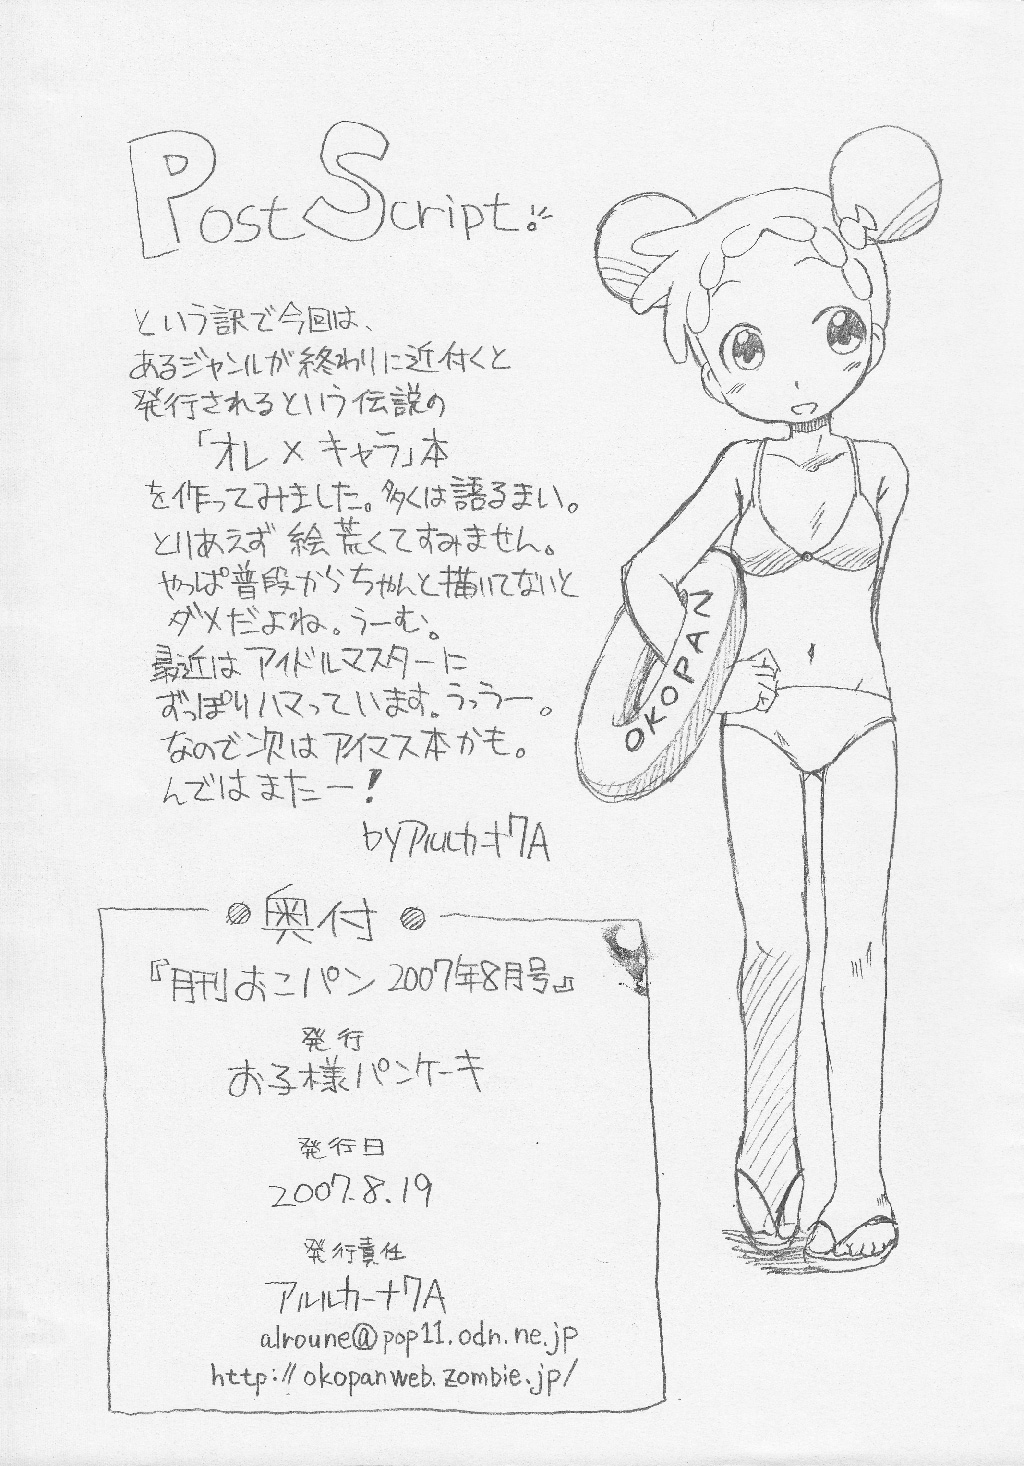 Post Script!
という訳で今回は、
あるジャンルが終わりに近付くと
発行されるという伝説の
「オレ×キャラ」本
を作ってみました。多くは語るまい。
とりあえず絵荒くてすみません。
やっぱ普段からちゃんと描いてないと
ダメだよね。うーむ。
最近はアイドルマスターに
ずっぽりハマっています。うっうー。
なので次はアイマス本かも。
んではまたー!
byアルルカーナ7A
OKOPAN
奥付
『月刊おこパン 2007年8月号』
発行
お子様パンケーキ
発行日
2007.8.19
発行責任
アルルカーナ7A
alroune@pop11.odn.ne.jp
http://okopanweb.zombie.jp/